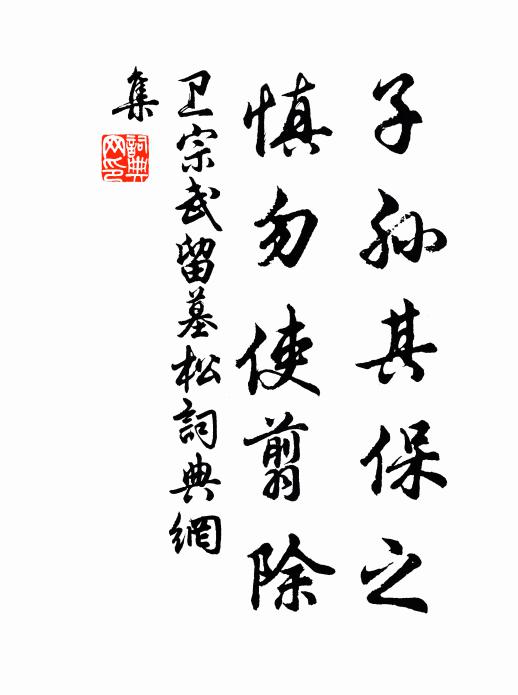 子孙其保之
慎勿使剪除
卫宗武留墓松詞典網
集
詞典
网印